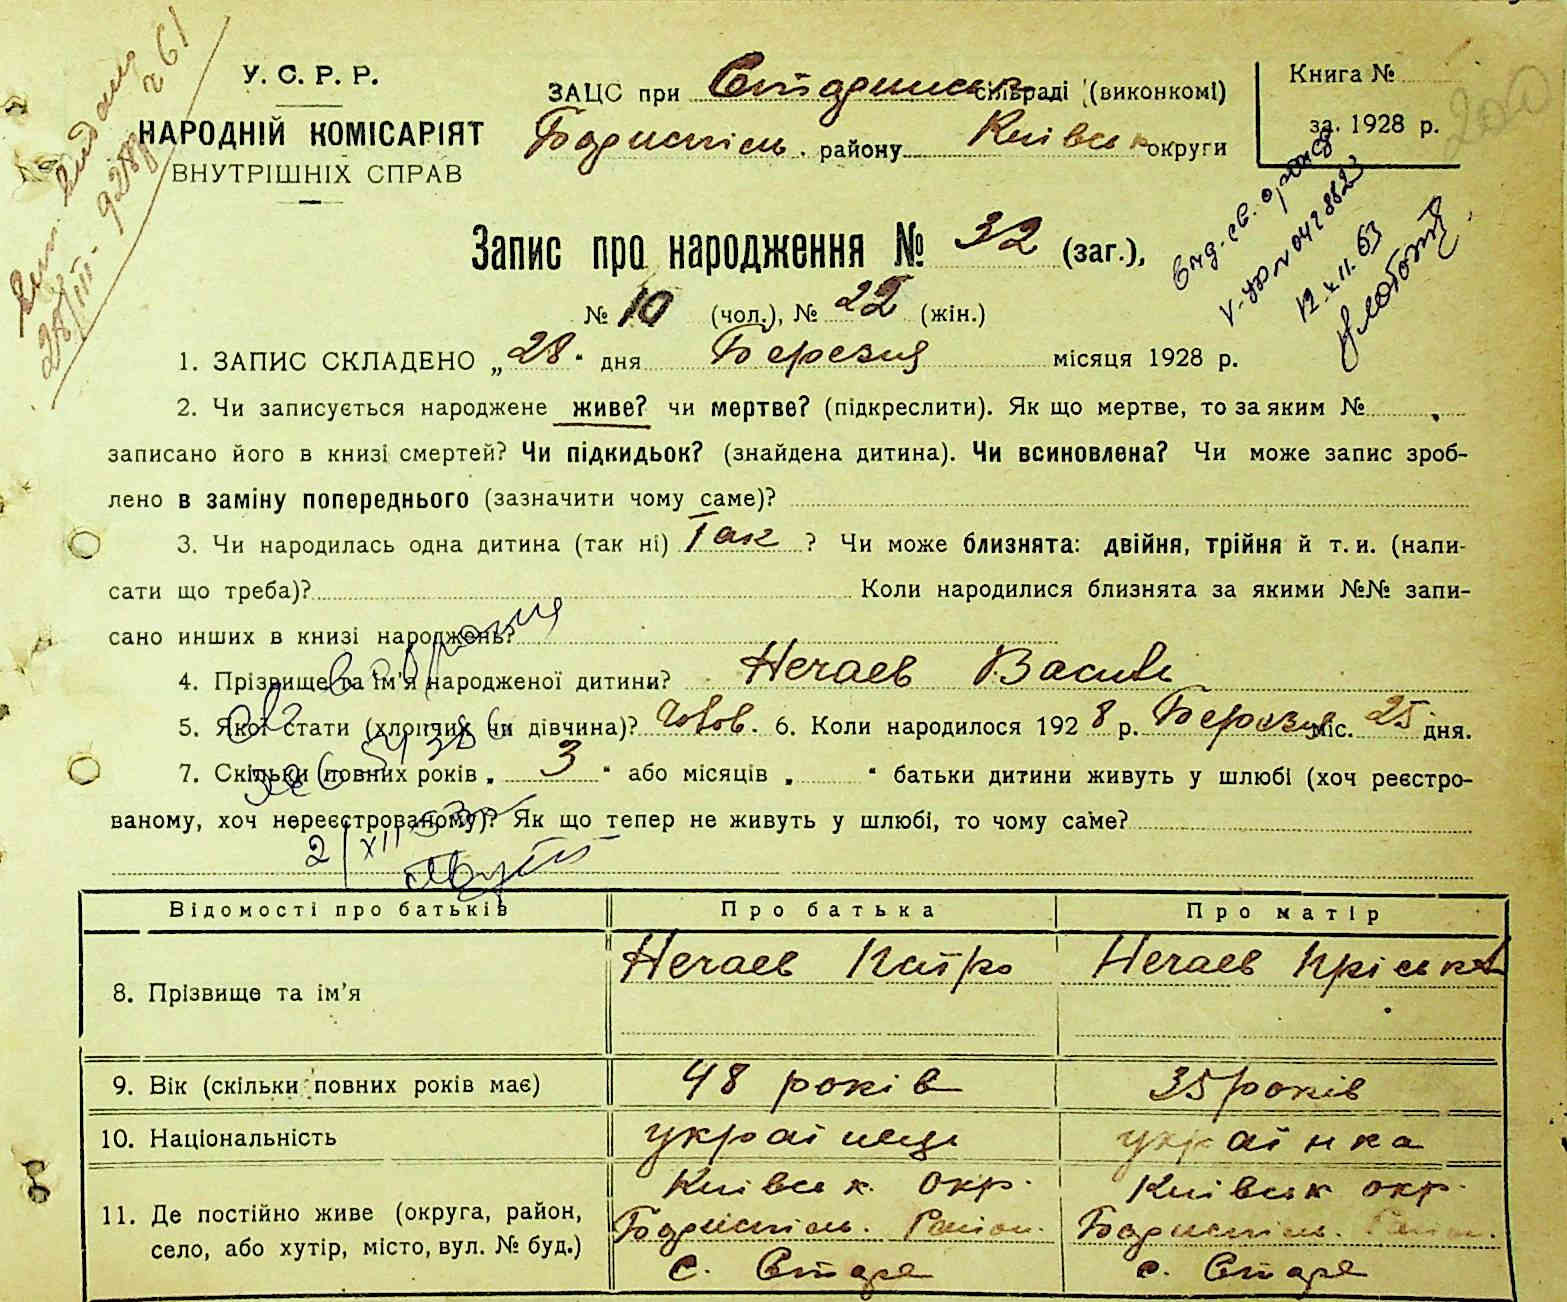 У. С. Р. Р.
НАРОДНІЙ КОМІСАРІЯТ
ВНУТРІШНІХ СПРАВ
ЗАЦС при сільраді (виконкомі)
Бориспіль. району Київськ округи
Книга №
за 1928 р.
200
Запис про народження № 32 (заг.),
№ 10 (чол.), № 22 (жін.)
1. ЗАПИС СКЛАДЕНО „28" дня Березня місяця 1928 р.
2. Чи записується народжене живе? чи мертве? (підкреслити). Як що мертве, то за яким №
записано його в книзі смертей? Чи підкидьок? (знайдена дитина). Чи всиновлена? Чи може запис зроб-
лено в заміну попереднього (зазначити чому саме)?
3. Чи народилась одна дитина (так ні) Так ? Чи може близнята: двійня, трійня й т. и. (напи-
сати що треба)? Коли народилися близнята за якими №№ запи-
сано инших в книзі народжень?
4. Прізвище та ім'я народженої дитини? Нечаев Василь
5. Якої стати (хлопчик чи дівчина)? Чолов. 6. Коли народилося 1928 р. Березня міс. 25 дня.
7. Скільки повних років „ 3 " або місяців „ " батьки дитини живуть у шлюбі (хоч реєстро-
ваному, хоч нереєстрованому)? Як що тепер не живуть у шлюбі, то чому саме?
2/XII
Відомості про батьків Про батька Про матір
8. Прізвище та ім'я Нечаев Петро Нечаев Пріська
9. Вік (скільки повних років має) 48 років 35 років
10. Національність українець українка
11. Де постійно живе (округа, район,
село, або хутір, місто, вул. № буд.)
Київськ. окр. Київськ окр.
Бориспіль. Район. Бориспіль. Район.
с. Старе с. Старе